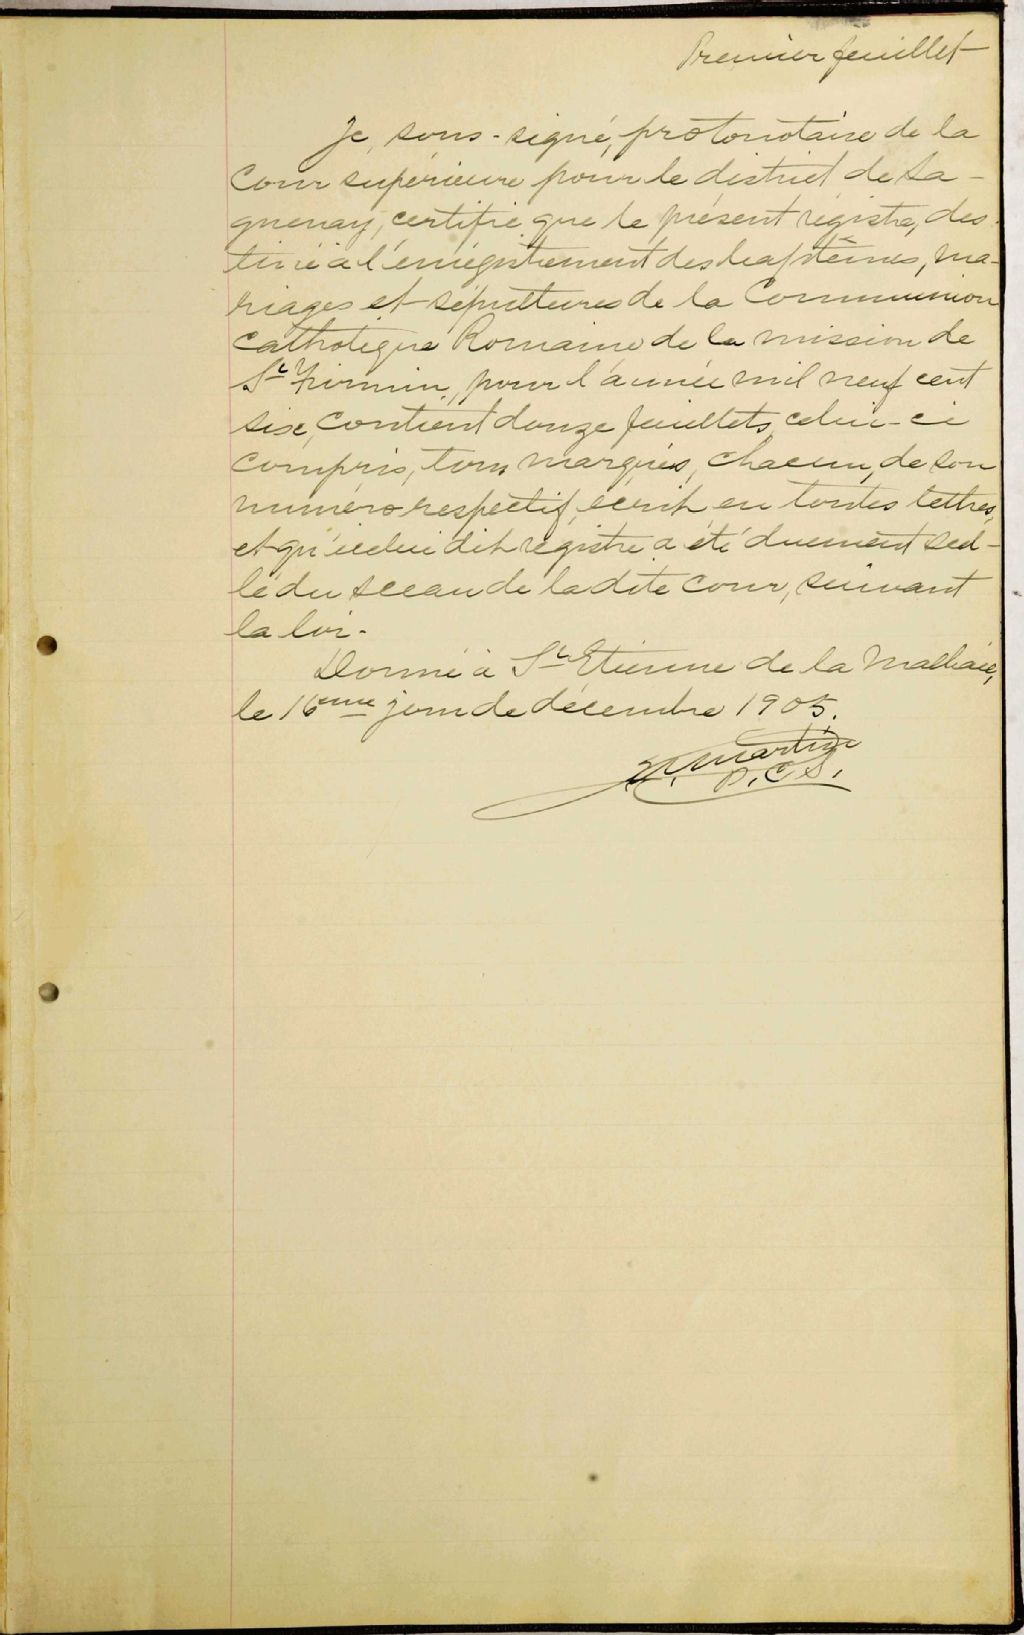 Premier feuillet
Je, sous-signé, protonotaire de la
Cour supérieure pour le district de Sa-
guenay, certifie que le présent régistre, des-
tiné à l'enrégistrement des baptêmes, ma-
riages et sépultures de la Communion
catholique Romaine de la mission de
St Firmin, pour l'année mil neuf cent
six, contient douze feuillets, celui-ci
compris, tous marqués, chacun, de son
numéro respectif, écrit en toutes lettres,
et qu'icelui dit régistre a été duement scel-
lé du sceau de la dite cour, suivant
la loi.
Donné à St Etienne de la Malbaie,
le 16eme jour de décembre 1905.
Martin
P.C.S.